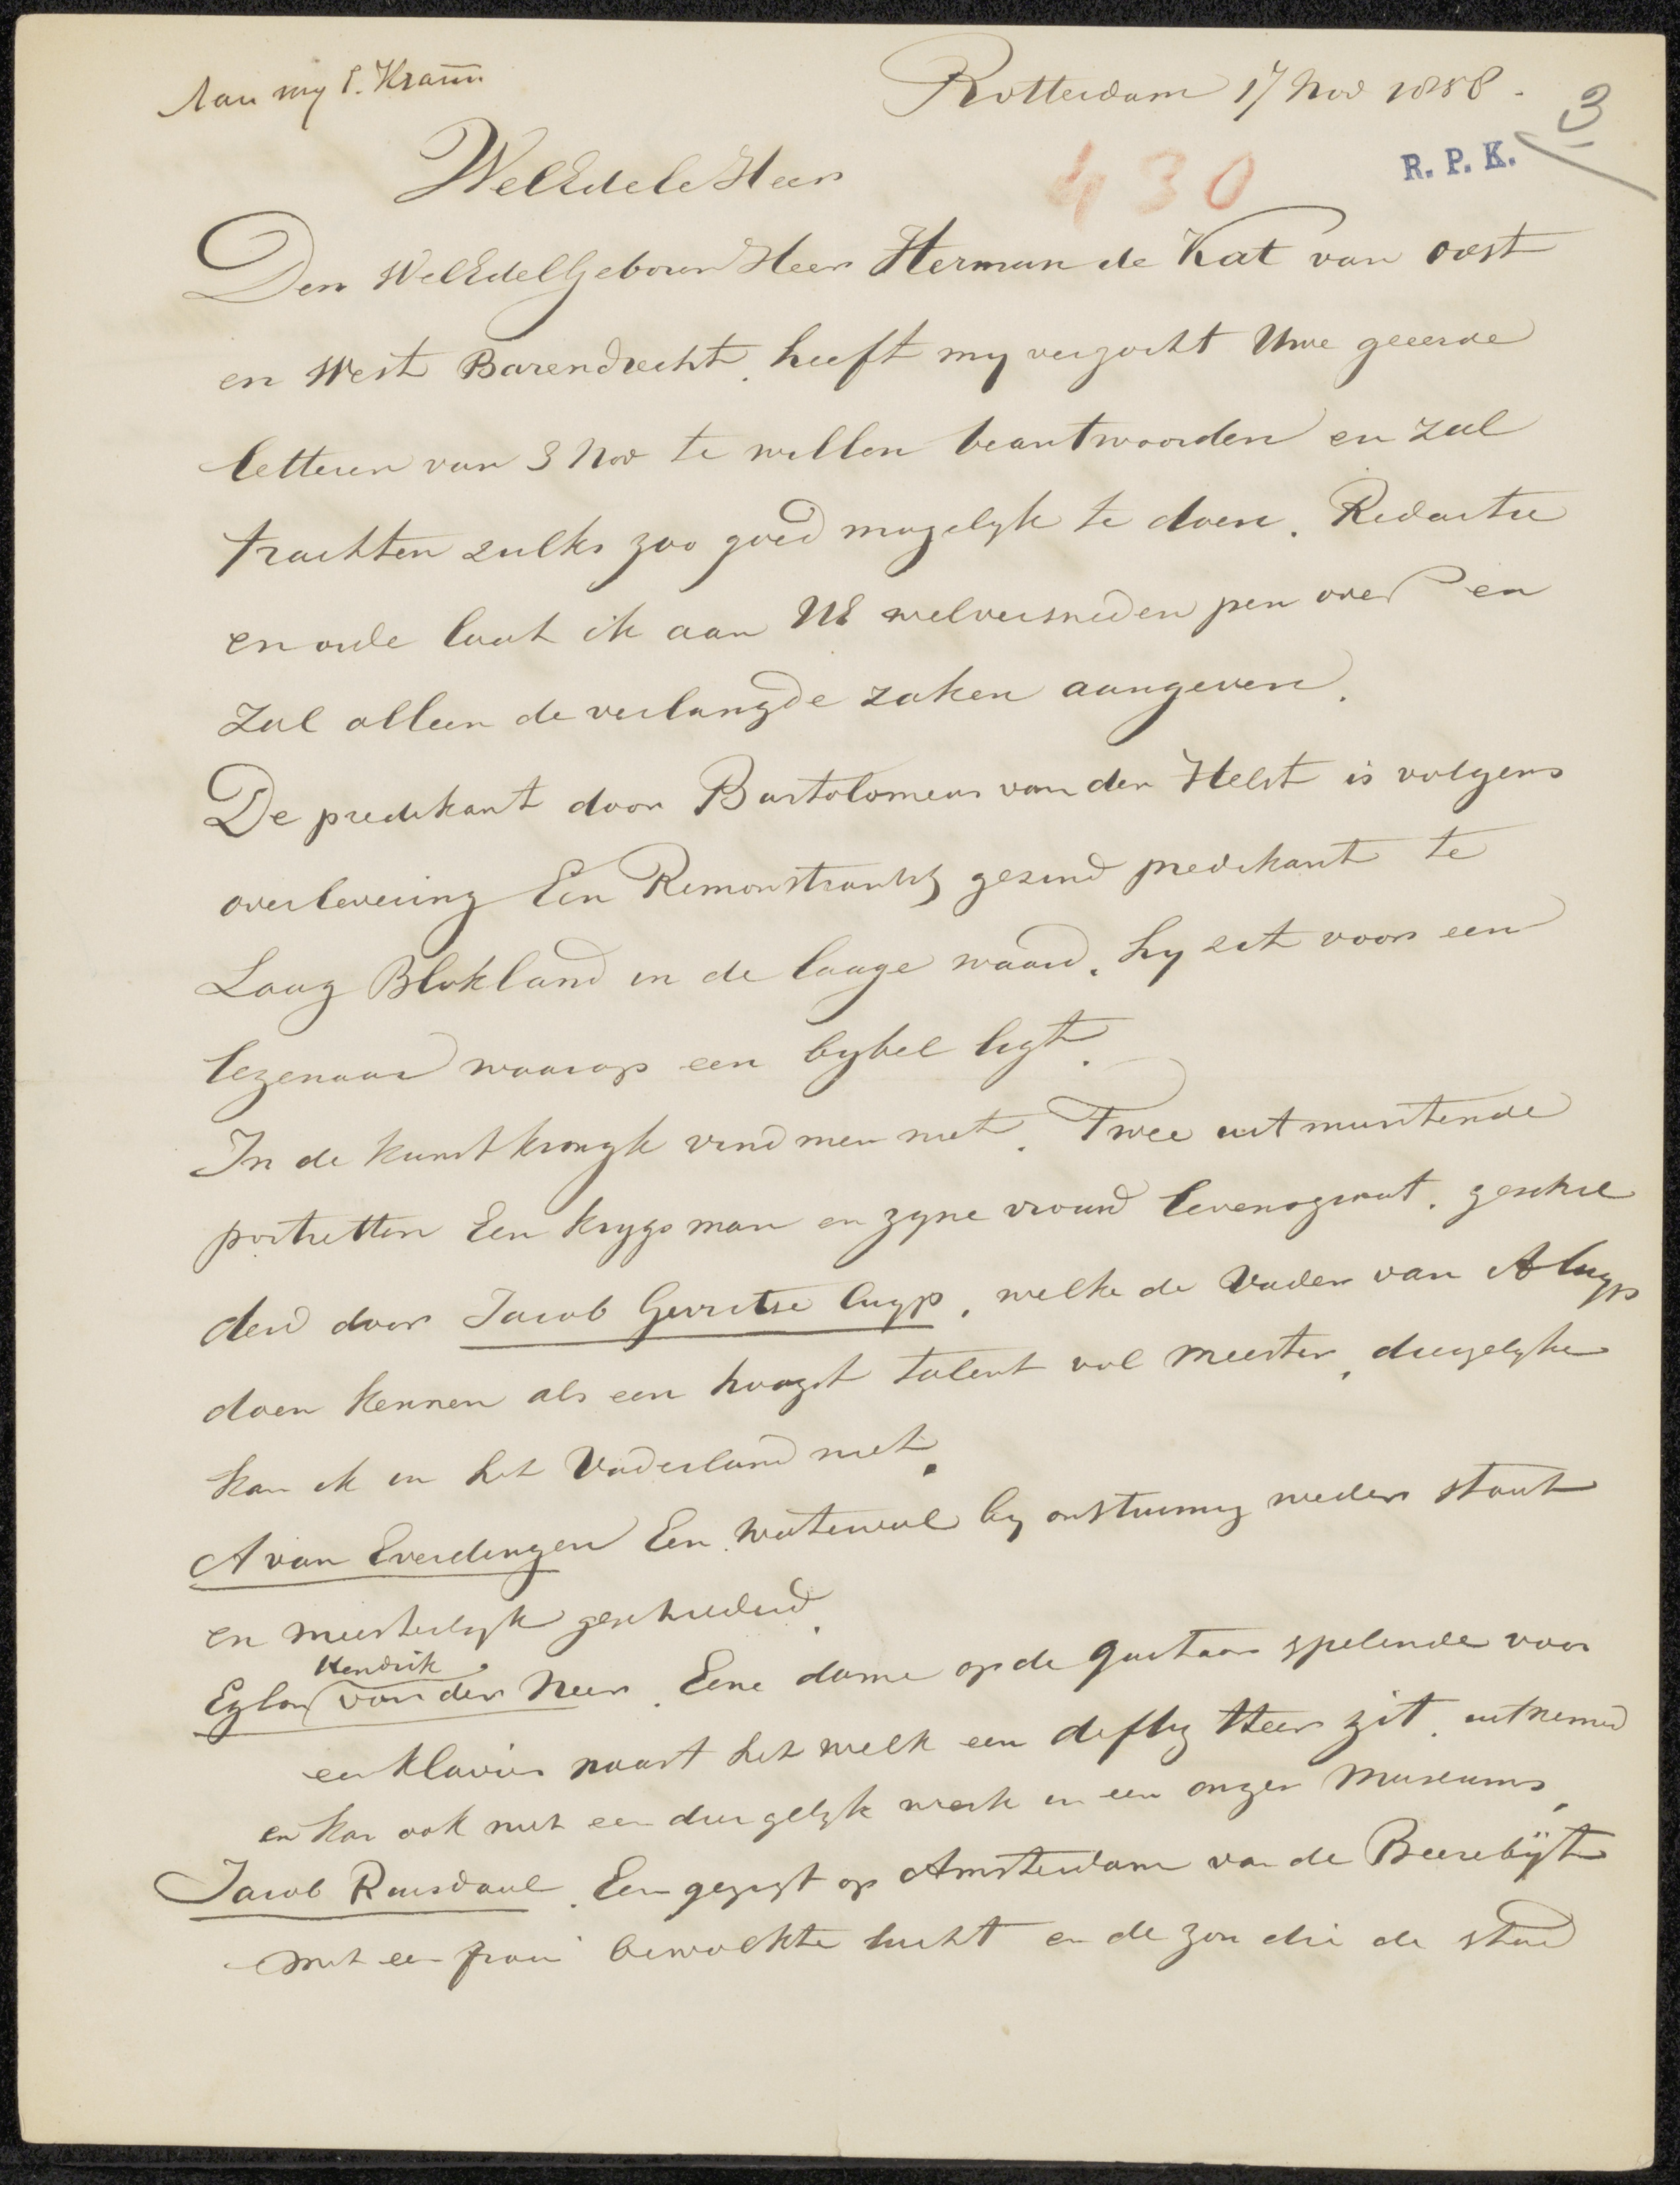 Aan my C. Kramm
Rotterdam 17 Nov 1858.
13
R. P. K.
430
WelEdele Heer
Den WelEdelGeboren Heer Herman de Kat van oost
en West Barendrecht. heeft my verzocht Uwe geeerde
letteren van 3 Nov te willen beantwoorden en zal
trachten zulks zoo goed mogelyk te doen. Redactie
en orde laat ik aan UE welversneden pen over en
zal alleen de verlangde zaken aangeven.
De predikant door Bartolomeus van der Helst is volgens
overlevering Een Remonstrants gezind predikant te
Laag Blokland in de laage waard. hy zit voor een
lezenaar waarop een bybel ligt.
In de kunstkronyk vind men niet. Twee uitmuntende
portretten Een krygsman en zyne vrouw levensgroot. geschil
derd door Jacob Gerritse Cuyp, welke de Vader van A Cuyp
doen kennen als een hoogst talent vol meester, diergelyke
kan ik in het Vaderland niet.
A van Everdingen Een waterval by onstuimig weder stout
en meesterlyk geschilderd.
Hendrik
Eglon van der Neer. Eene dame op de guitaar spelende voor
een klavier naast het welk een deftig Heer zit. uitnemend
en kan ook niet een diergelyk werk in een onzer Museums.
Jacob Ruisdaal. Een gezigt op Amsterdam van de Beerebÿt
met een fraai bewolkte lucht en de zon die de stad